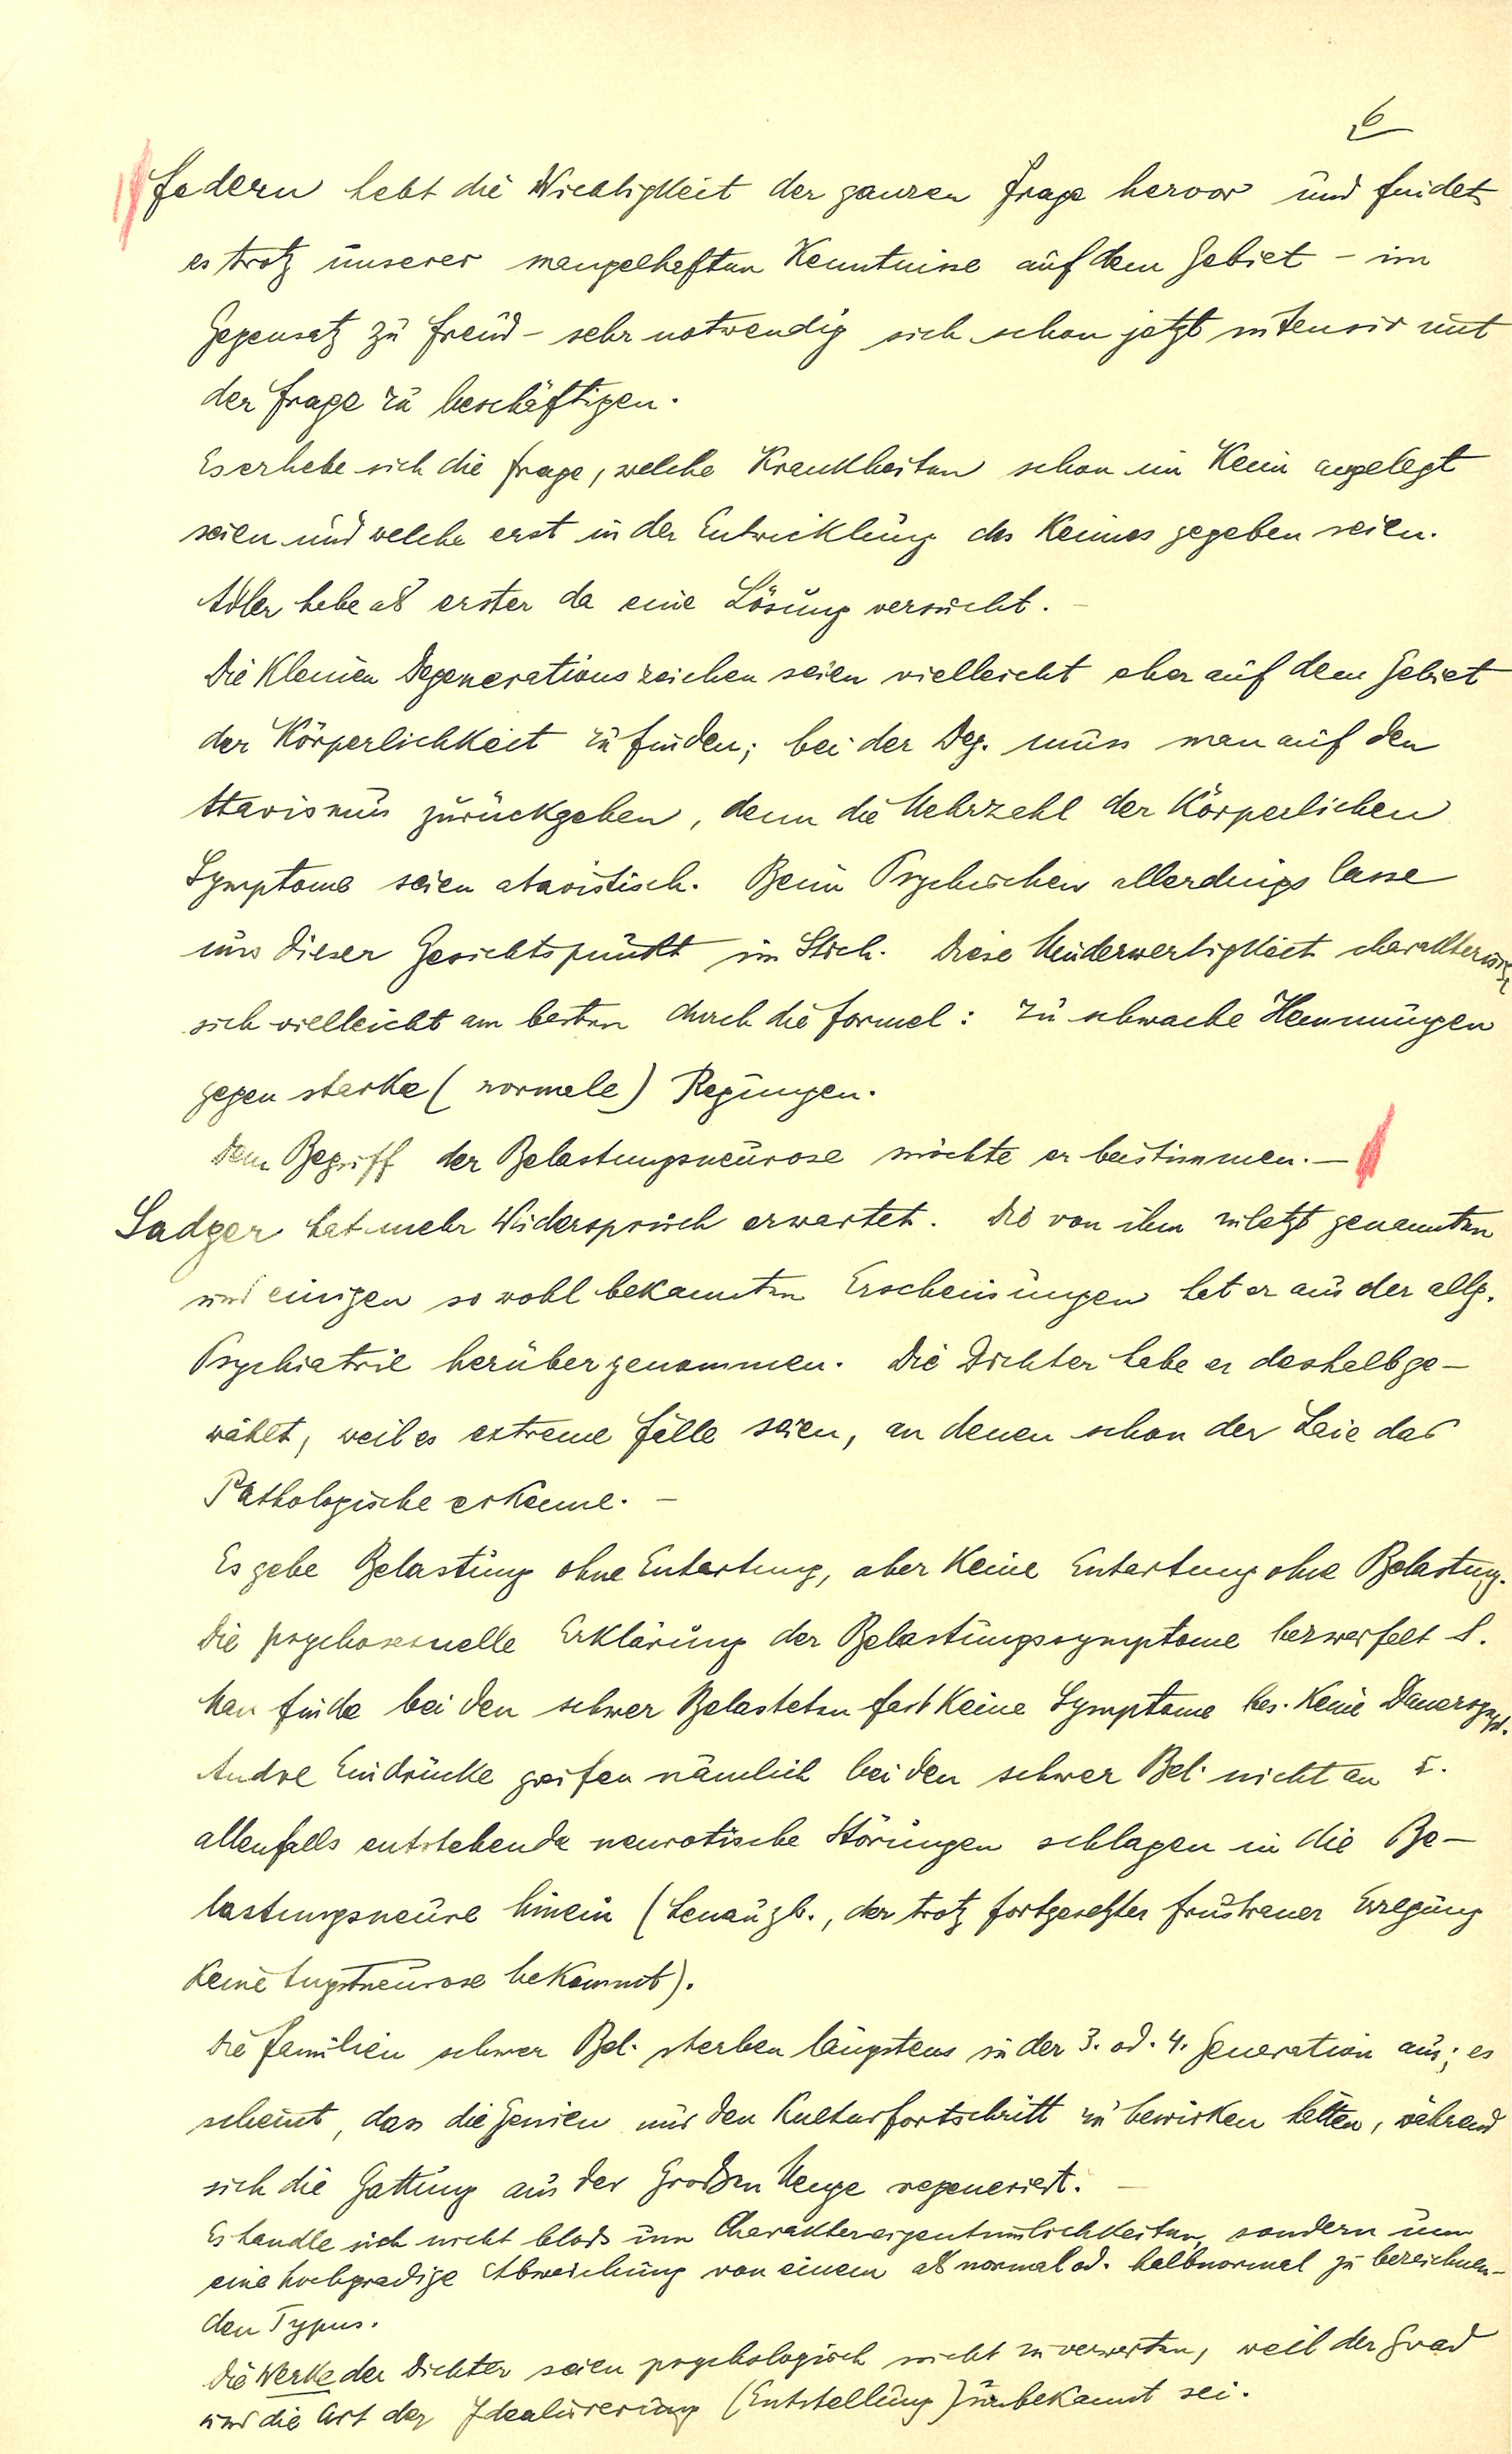 6
Federn hebt die Wichtigkeit der ganzen Frage hervor und findet
es trotz unserer mangelhaften Kenntnisse auf dem Gebiet – im
Gegensatz zu Freud – sehr notwendig sich schon jetzt intensiv mit
der Frage zu beschäftigen.
Es erhebe sich die Frage, welche Krankheiten schon im Keim angelegt
seien und welche erst in der Entwicklung des Keimes gegeben seien.
Adler habe als erster da eine Lösung versucht. –
Die kleinen Degenerationszeichen seien vielleicht eher auf dem Gebiet
der Körperlichkeit zu finden; bei der Deg. muss man auf den
Atavismus zurückgehen, denn die Mehrzahl der körperlichen
Symptome seien atavistisch. Beim Psychischen allerdings lasse
uns dieser Gesichtspunkt im Stich. Diese Minderwertigkeit charakterisire
sich vielleicht am besten durch die Formel: zu schwache Hemmungen
gegen starke (normale) Regungen.
Dem Begriff der Belastungsneurose möchte er beistimmen. –
Sadger hat mehr Widerspruch erwartet. Die von ihm zuletzt genannten
und einigen so wohl bekannten Erscheinungen hat er aus der allg.
Psychiatrie herübergenommen. Die Dichter habe er deshalb ge–
wählt, weil es extreme Fälle seien, an denen schon der Laie das
Pathologische erkenne. –
Es gebe Belastung ohne Entartung, aber keine Entartung ohne Belastung.
Die psychosexuelle Erklärung der Belastungssymptome bezweifelt S.
Man finde bei den schwer Belasteten fast keine Symptome bes. keine Dauersympt.
Andre Eindrücke greifen nämlich bei den schwer Bel. nicht an u.
allenfalls entstehende neurotische Störungen schlagen in die Be–
lastungsneure hinein (Lenau zb., der trotz fortgesetzter frustraner Erregung
keine Angstneurose bekommt).
Die Familien schwer Bel. sterben längstens in der 3. od. 4. Generation aus; es
scheint, dass die Genien nur den Kulturfortschritt zu bewirken hätten, während
sich die Gattung aus der Großen Menge regeneriert. –
Es handle sich nicht bloß um Charaktereigentümlichkeiten, sondern um
eine hochgradige Abweichung von einem als normal od. halbnormal zu bezeichnen–
den Typus.
Die Werke der Dichter seien psychologisch nicht zu verwerten, weil der Grad
und die Art der Idealisierung (Entstellung) unbekannt sei.